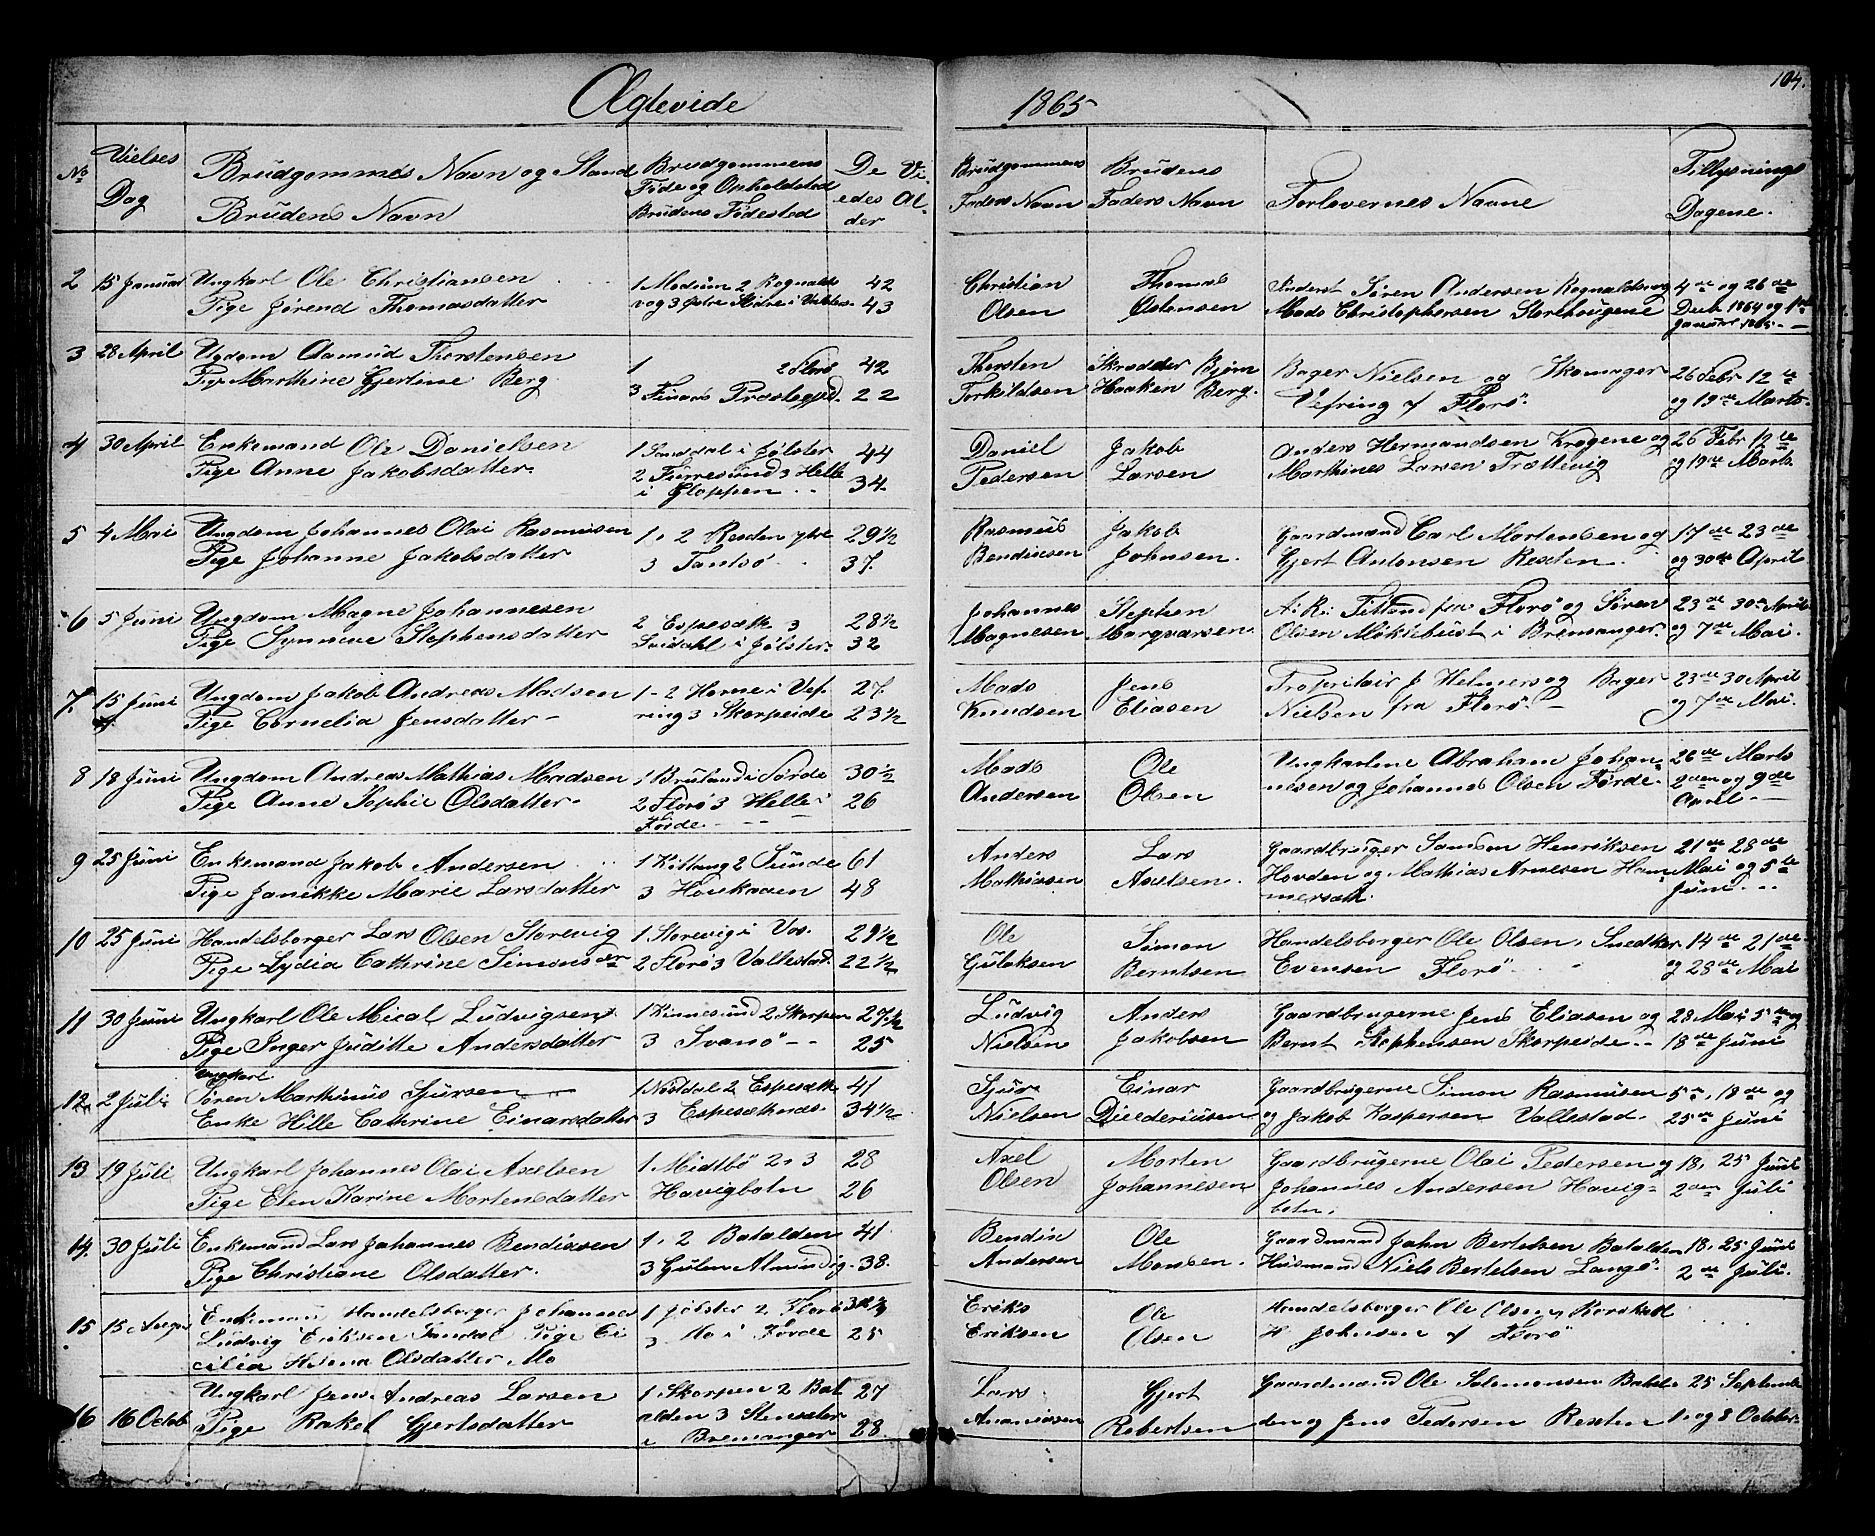 Ægtevide 1865 104.
No Vielses Dag
Brudgommens Navn og Stand
Brudens Navn
Brudgommens Føde og Opholdsted
Brudens Fødested
De Viedes Alder
Brudgommens Faders Navn
Brudens Faders Navn
Forlovernes Navne
Tillysnings Dagene.
2 15 Januar Ungkarl Ole Christiansen 42 Christian Olsen Thomas Søren Andersen 4de og 26de
Pige Jørend Thomasdatter 43 Mads Christophersen Decb 1864 og 1ste Januar 1865
3 28 April Ungdom Aamud Thorstensen 1 2 Florø 42 Thorsten Torkildsen Skrædder Bjørn Haaken Berg. Bager Nielsen og Skomager 26 Febr 12te
Pige Marthine Gjertine Berg 3 Præstegjd. 22 Vefring af Florø og 19de Marts
4 30 April Enkemand Ole Danielsen 1 Sanddal i Jølster 44 Daniel Pedersen Jakob Larsen Anders Hermandsen Krogene og 26 Febr 12te
Pige Anne Jakobsdatter 2 Furresund 3 Helle i Gloppen 34 Marthines Larsen Trættevig og 19de Marts
5 4 Mai Ungdom Johannes Olai Rasmusen 1, 2 Resten ytre 29½ Rasmus Bendixsen Jakob Johnsen. Gaardmand Carl Mortensen og 17de 23de
Pige Johanne Jakobsdatter 3 Tansø 37. Gjert Antonsen Resten og 30de April
6 5 Juni Ungdom Magne Johannesen 2 Espesæth 3 28½ Johannes Magnesen Stephen 23de 30te April
Pige Synneve Stephensdatter i Jølster 32 Olsen Møklebust i Bremanger og 7de Mai.
7. 15 Juni Ungdom Jakob Andreas Madsen 1-2 Horne i Vef- 27. Mads Knudsen Jens Eliasen Propritair J Helmers og Bager 23de 30 April
Pige Cornelia Jensdatter ring 3 Skorpeide 23½ Nielsen fra Florø og 7de Mai.
8 18 Juni Ungdom Andreas Mathias Madsen 1 Bruland i Førde 30½ Mads Andersen Ole Olsen Ungkarlene Abraham Johan- 26de Marts
Pige Anne Sophie Olsdatter 2 Florø 3 Helle i Førde 26 nesen og Johannes Olsen Førde 2den og 9de April
9 25 Juni Enkemand Jakob Andersen 1 Kittang 2 Sunde 61 Anders Mathissen Lars Axelsen. Gaardbruger Samson Henriksen 21de 28de
Pige Janikke Marie Larsdatter 3 Houkaaen 48 Hovden og Mathias Arnesen Ham- mersæth Mai og 5te Juni
10 25 Juni Handelsborger Lars Olsen Storevig 1 Storevig i Vos. 29½ Ole Guloksen Simon Berntsen Handelsborger Ole Olsen, Snedker 14de 21de
Pige Lydia Cathrine Simonsdr 2 Florø 3 Vallestad 22½ Evensen Florø og 28de Mai
11 30 Juni Ungkarl Ole Mical Ludvigsen 1 Kinnesund 2 Skorpen 27½ Ludvig Nielsen Anders Jakobsen Gaardbrugerne Jens Eliasen og 28 Mai 5te og
Pige Inger Juditte Andersdatter 3 Svanø 25 Bernt Stephensen Skorpeide 18de Juni
12 2 Juli Ungkarl Søren Marthinus Sjursen 1 Nordal 2 Espesæth 41 Sjur Nielsen Einar Diedericksen Gaardbrugerne Simon Rasmusen 5te, 18de og
Enke Hille Cathrine Einarsdatter 3 Espesæthnæs. 34½ og Jakob Kaspersen Vallestad 25de Juni
13 19 Juli Ungkarl Johannes Olai Axelsen 1 Midtbø 2, 3 28 Axel Olsen Morten Johannesen Gaardbrugerne Olai Pedersen og 18, 25 Juni
Pige Elen Karine Mortensdatter Havigbotn 26 Johannes Andersen Havig- botn. 2den Juli
14. 30 Juli Enkemand Lars Johannes Bendixsen 1, 2 Batalden 41 Bendix Andersen Ole Monsen. Gaardmand John Bertelsen Batalden 18, 25 Juni
Pige Christiane Olsdatter. 3 Gulen Almindig 38. Husmand Niels Bertelsen Langø 2de Juli.
15 15 August Enkemand Handelsborger Johannes 1 Jølster 2 Florø Eriks Eriksen Ole Olsen Handelsborger Ole Olsen,
Ludvig Eriksen Sandal Pige Ce- 3 Mo i Førde 25 H Johnsen af Florø
cilia Helena Olsdatter Mo
16 16 Octob Ungkarl Jens Andreas Larsen 1, Skorpen 2 Bat- 27 Lars Ananiassen Gjert Robertsen Gaardmand Ole Salomonsen Batal- 25 September
Pige Rakel Gjertsdatter alden 3 Stensæter i Bremanger 28. den og Jens Pedersen Resten 1. og 8 October